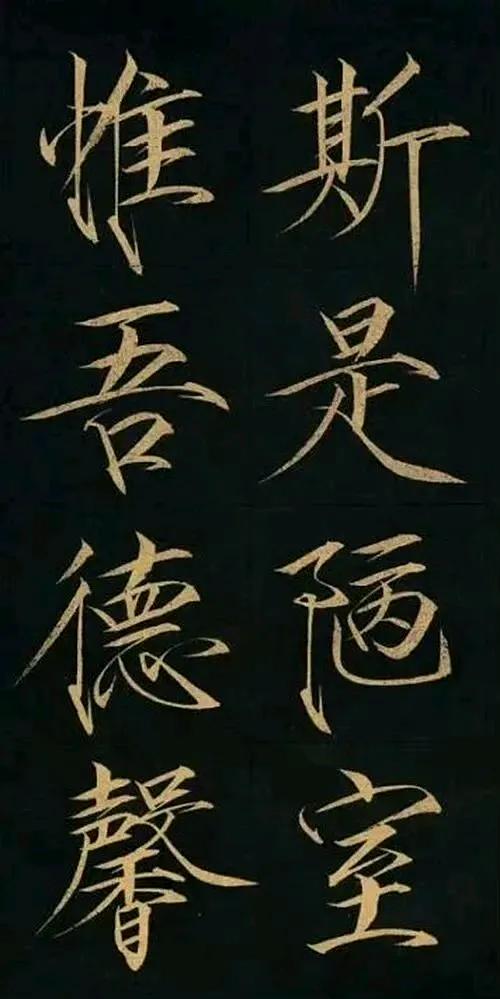 斯是陋室
惟吾德馨